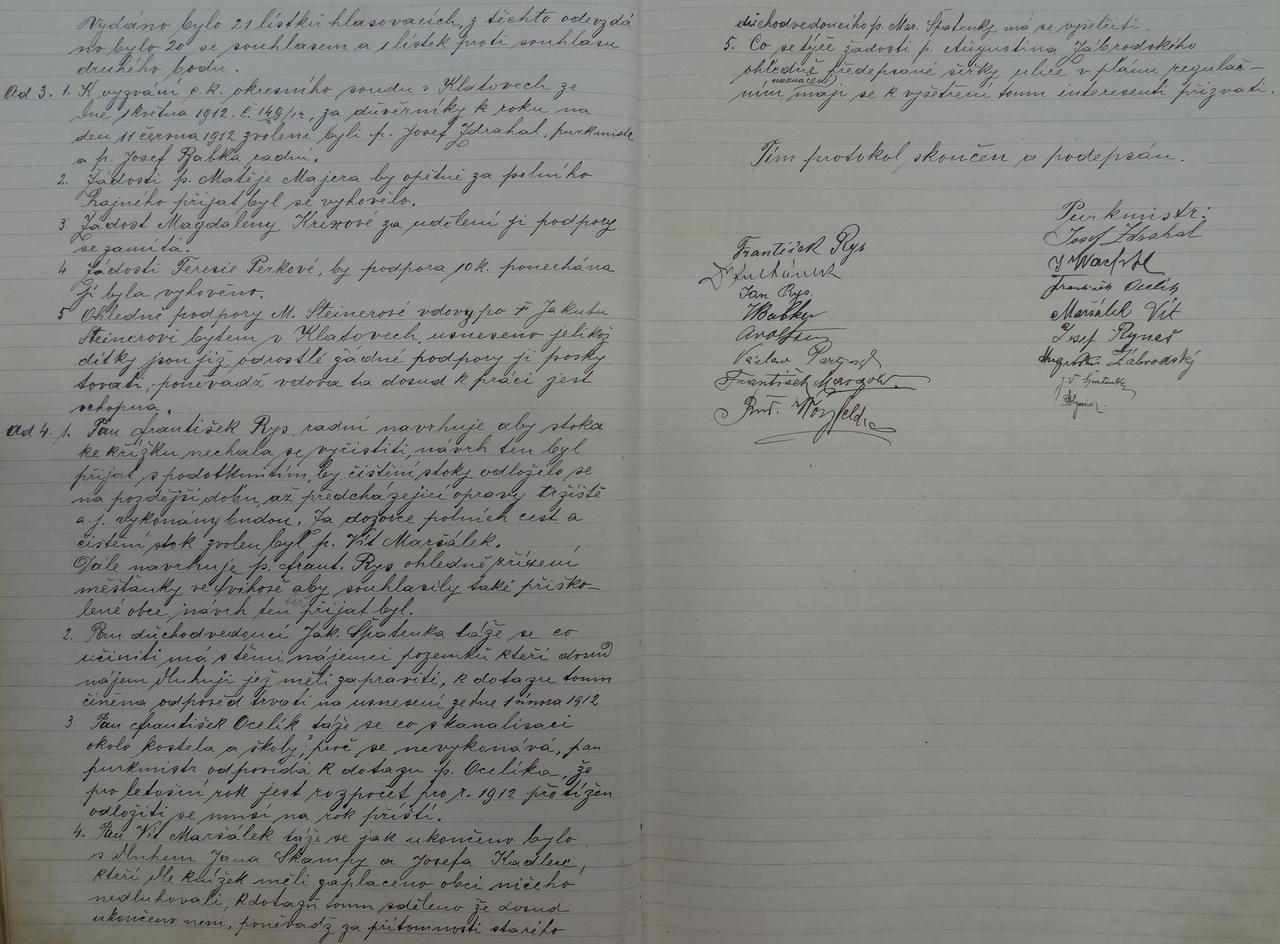 Vydáno bylo 21 lístků hlasovacích, z těchto odevzdá
no bylo 20 se souhlasem a 1 lístek proti souhlasu
druhého bodu.
Ad 3. 1. K vyzvání c. k. okresního soudu v Klatovech ze
dne 1 května 1912. Č. za důvěrníky k roku na
den 11 června 1912 zvoleni byli p. Josef Zdrahal, purkmistr
a p. Josef Babka radní.
2. Žádosti p. Matěje Majera by opětně za polního
hajného přijat byl se vyhovělo.
3 Žádost Magdaleny Krixové za udělení ji podpory
se zamítá.
4 Žádosti Teresie Perkové, by podpora 10 k. ponechána
ji byla vyhověno.
5 Ohledně podpory M. Steinerové vdovy po Jakubu
Steinerovi bytem v Klatovech, usneseno jelikož
dítky jsou již odrostlé žádné podpory ji posky
tovati, poněvadž vdova ta dosud k práci jest
schopna.
Ad 4. 1. Pan František Rys, radní navrhuje aby stoka
ke křížku nechala se vyčistiti, návrh ten byl
přijat s podotknutím, by čistění stoky odložilo se
na pozdější dobu, až předcházející opravy tržiště
a. j. vykonány budou. Za dozorce polních cest a
čistění stok zvolen byl p. Vít Maršálek.
Dále navrhuje p. Frant. Rys ohledně zřízení
měšťanky ve Švihově aby souhlasily také přiško-
lené obce, návrh ten přijat byl.
2. Pan důchodvedoucí Jak. Špatenka táže se co
učiniti má s těmi nájemci pozemků kteří dosud
nájem dluhují jež měli zapraviti, k dotazu tomu
činěna odpověd trvati na usnesení ze dne 1 února 1912
3. Pan František Ocelík táže se co s kanalisací
okolo kostela a školy, proč se nevykonává, pan
purkmistr odpovídá k dotazu p. Ocelíka, že
pro letošní rok jest rozpočet pro r. 1912 přetížen
odložiti se musí na rok příští.
4. Pan Vít Maršálek táže se jak ukončeno bylo
s dluhem Jana Škampy a Josefa Kadlece,
kteří dle knížek měli zaplaceno obci ničeho
nedluhovali; k dotazu tomu sděleno že dosud
ukončeno není, poněvadž za přítomnosti starého
důchodvedoucího p. Mar. Špatenky má se vyšetřiti.
5. Co se týče žádosti p. Augustina Zábrodského
ohledně předepsané šířky ulice v plánu regulač-
ním naznačené mají se k vyšetření tomu interesenti přizvati.
Tím protokol skončen a podepsán.
Purkmistr:
Josef Zdrahal
František Rys
J Wachtl
František Ocelík
Jan Rys
Maršálek Vít
J Babka
Josef Ryneš
Augustin Zábrodský
Václav
František